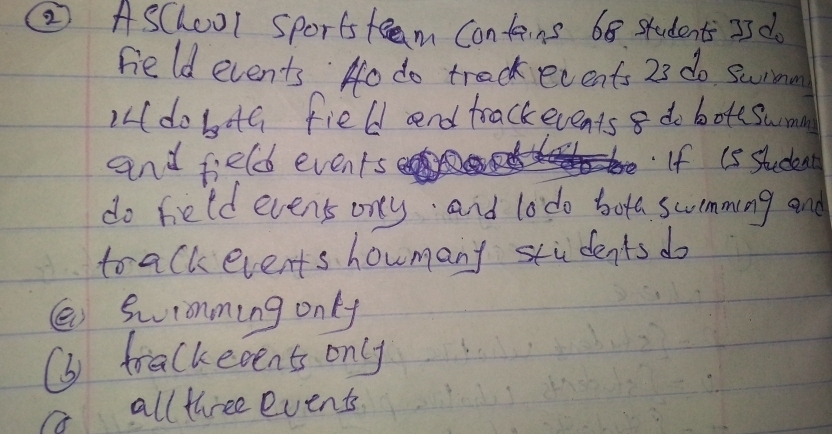 ② A School sports team contains 68 students 33 do
field events. 40 do track events 23 do swimm
14 do both field and track events 8 do both Swimm
and field events . If 15 Student
do field events only . and 10 do both swimming and
track events howmany students do
(a) Swimming only
(b) track events only
(c all three Events